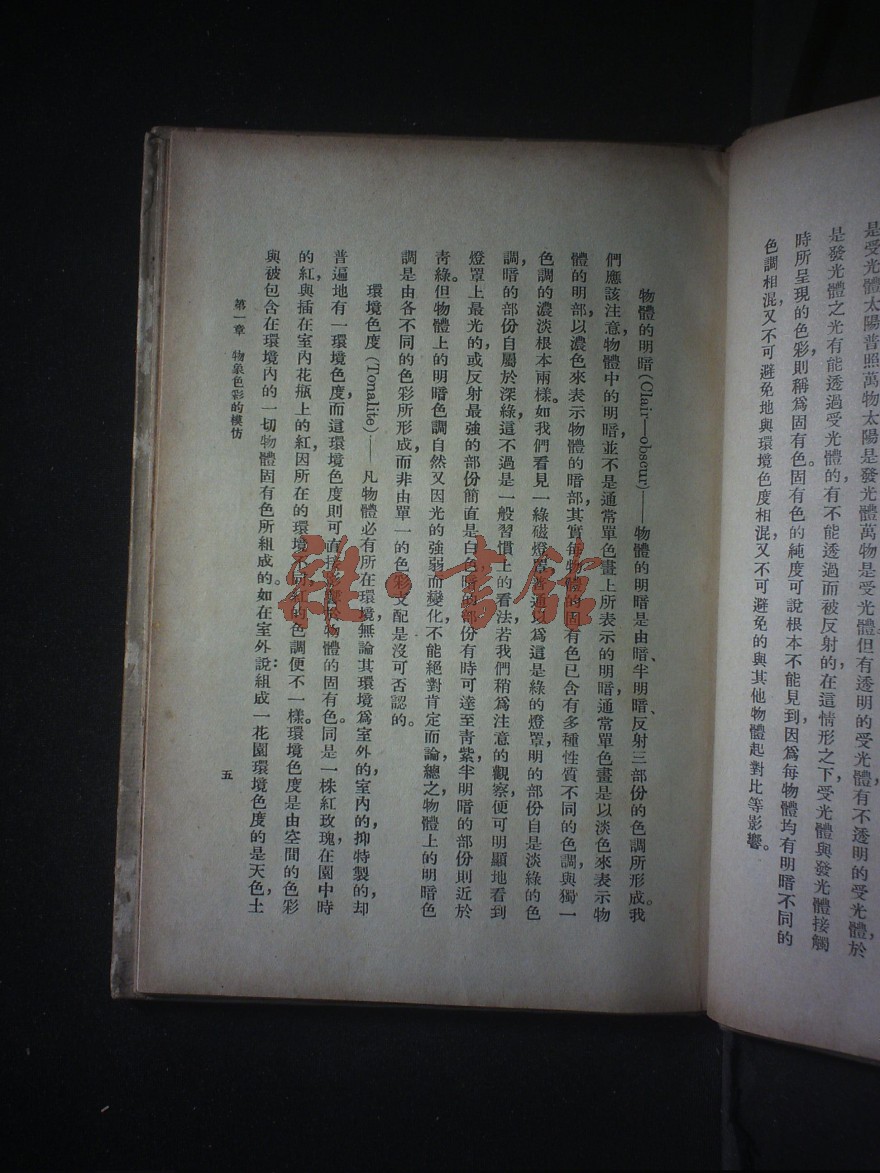 是受光體太陽普照萬物太陽是發光體萬物是受光體。但有透明的受光體,有不透明的受光體,於
是發光體之光有能透過受光體的,有不能透過而被反射的在這情形之下,受光體與發光體接觸
時所呈現的色彩,則稱爲固有色。固有色的純度可說根本不能見到,因爲每物體均有明暗不同的
色調相混,又不可避免地與環境色度相混,又不可避免的與其他物體起對比等影響。
物體的明暗(Clair—obscur)——物體的明暗是由暗、半明暗、反射三部份的色調所形成。我
們應該注意,物體中的明暗並不是通常單色畫上所表示的明暗,通常單色畫是以淡色來表示物
體的明部,以濃色來表示物體的暗部,其實每物體的固有色已含有多種性質不同的色調,與獨一
色調的濃淡根本兩樣。如我們看見一綠磁燈罩普通以爲這是綠的燈罩,明的部份自是淡綠的色
調,暗的部份自屬於深綠,這不過是一般習慣上的看法,若我們稍爲注意的觀察,便可明顯地看到
燈罩上最光的,或反射最強的部份簡直是白色,暗的部份有時可達至靑紫,半明暗的部份則近於
靑綠。但物體上的明暗色調自然又因光的強弱而變化不能絕對肯定而論,總之,物體上的明暗色
調是由各不同的色彩所形成,而非由單一的色彩支配是沒可否認的。
環境色度(Tonalite)——凡物體必有所在環境,無論其環境爲室外的,室內的,抑特製的,却
普遍地有一環境色度,而這環境色度則可直接影響於物體的固有色。同是一株紅玫瑰,在園中時
的紅,與插在室內花瓶上的紅,因所在的環境不同,紅的色調便不一樣。環境色度是由空間的色彩
與被包含在環境內的一切物體固有色所組成的。如在室外說:組成一花園環境色度的是天色,土
第一章 物象色彩的模仿
五
雜·書館